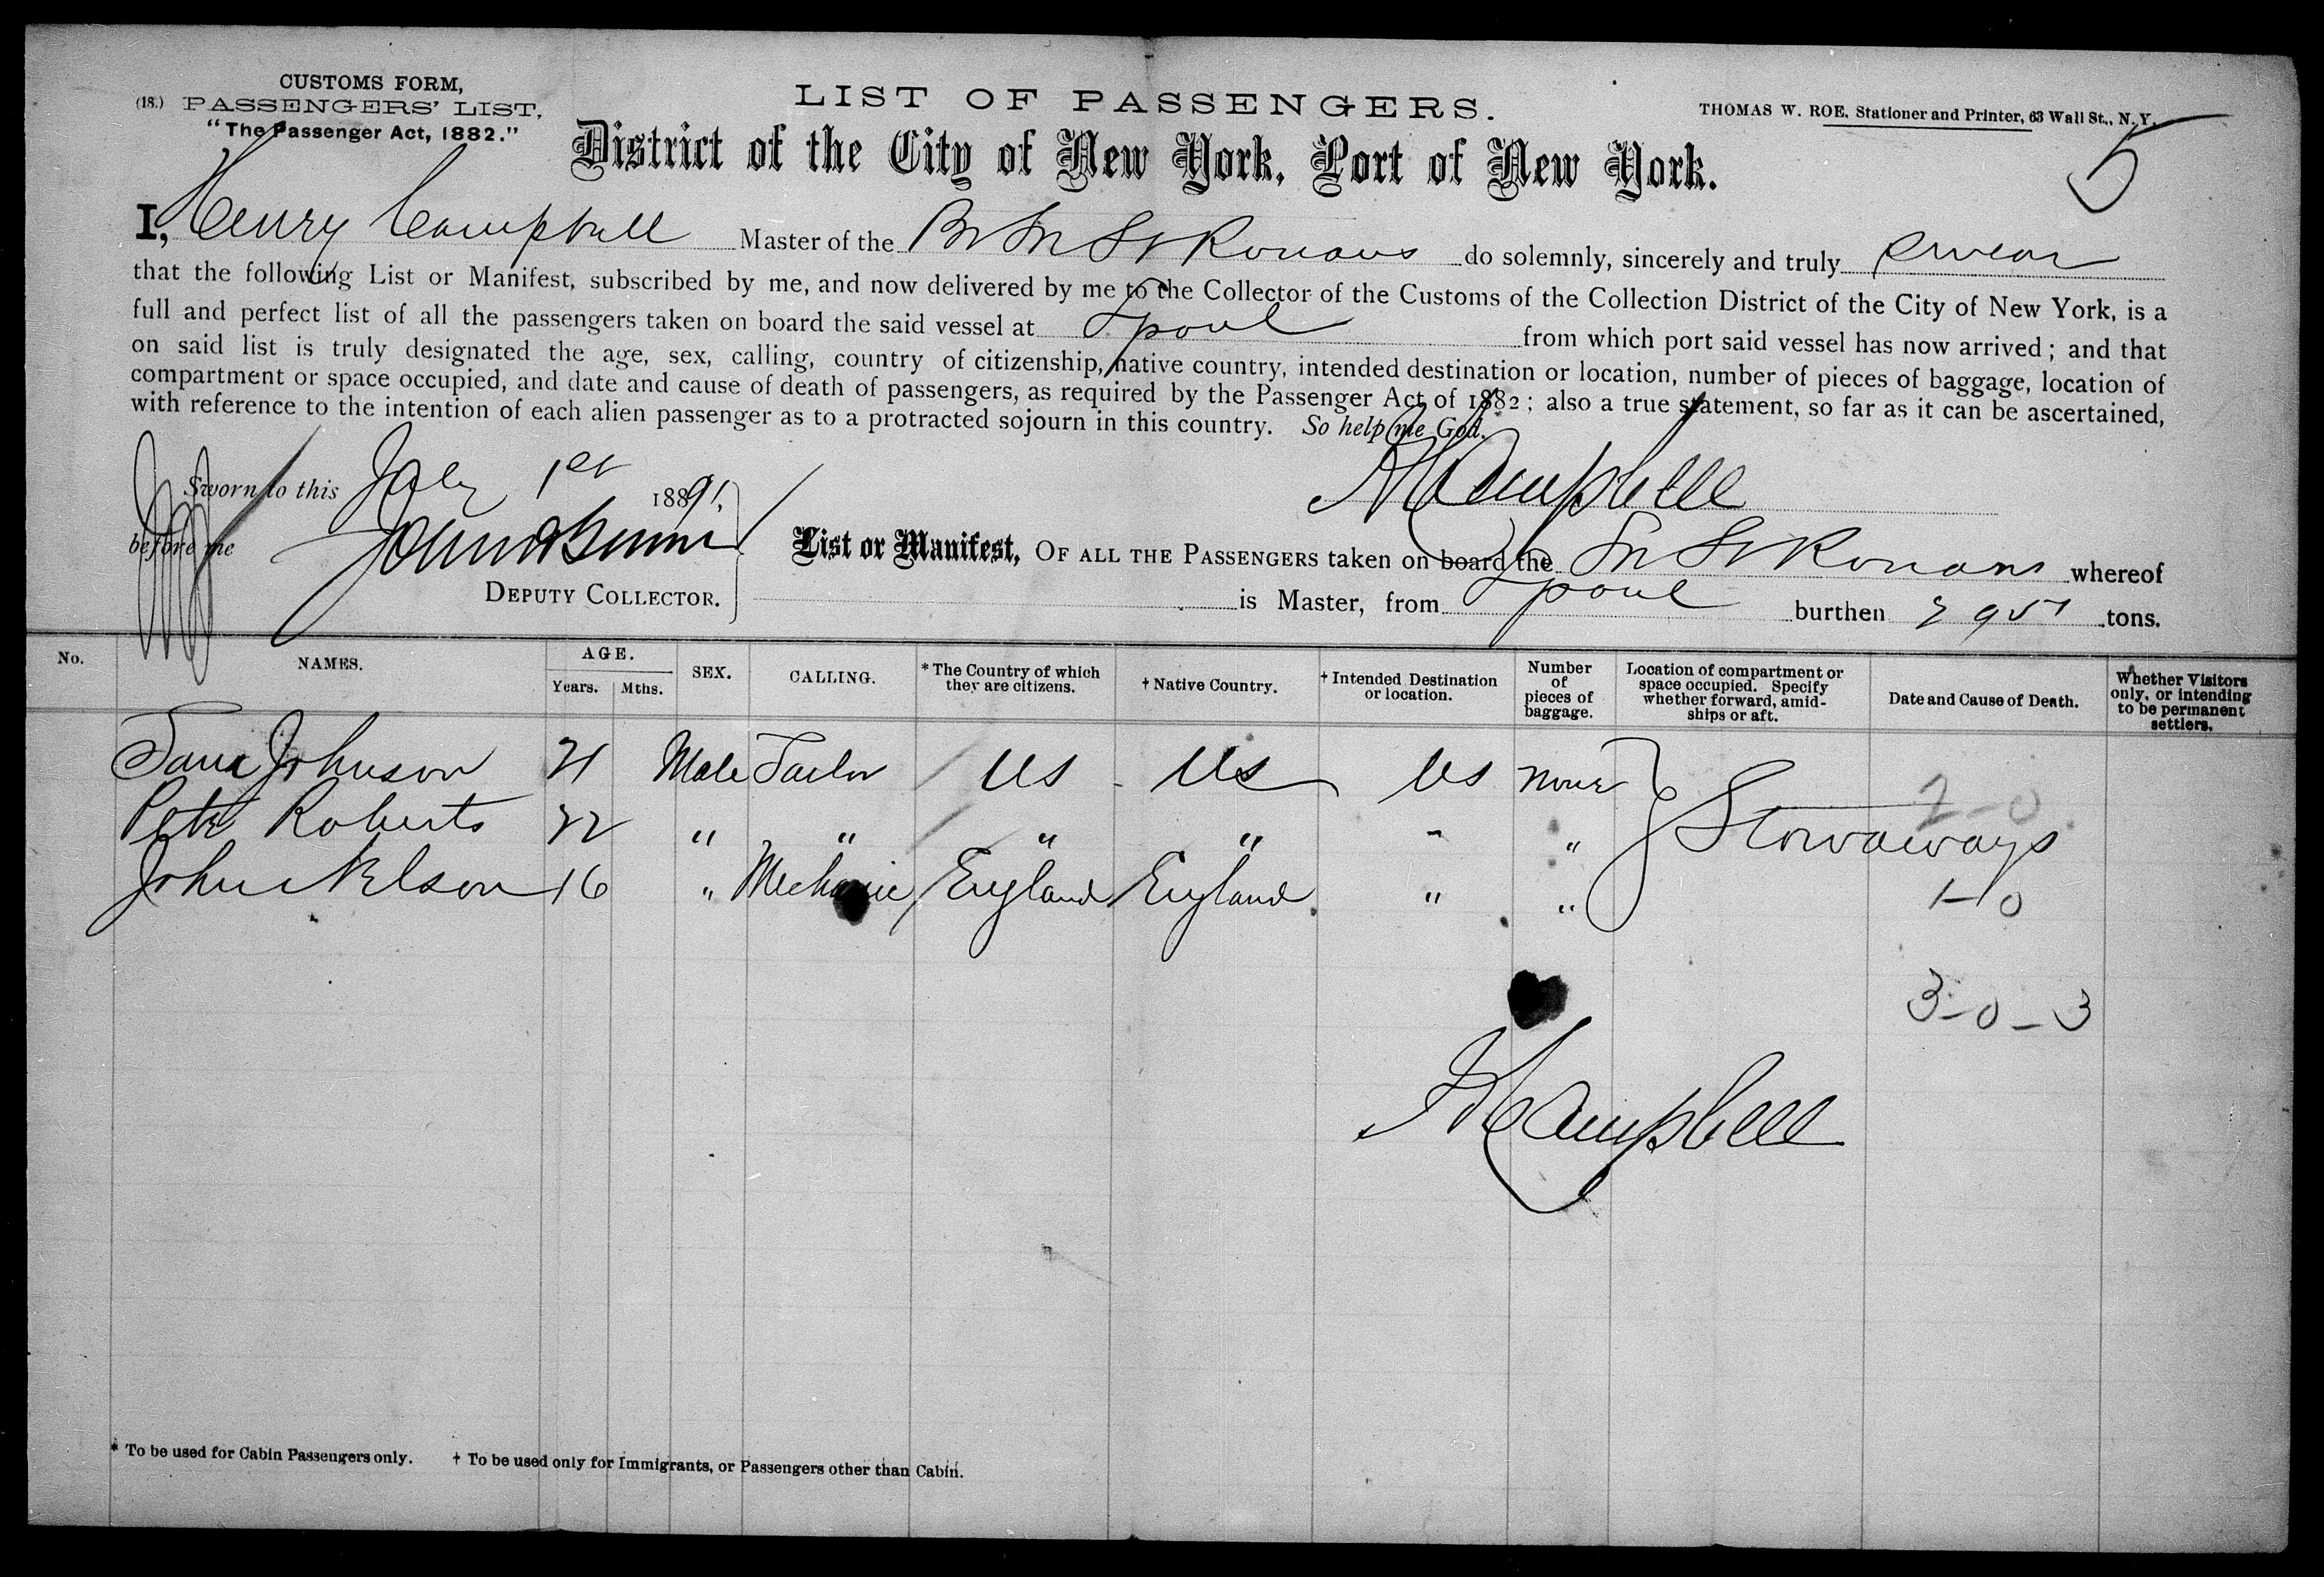 CUSTOMS FORM,
(18.) PASSENGERS' LIST,
"The Passenger Act, 1882."
LIST OF PASSENGERS.
THOMAS W. ROE, Stationer and Printer, 63 Wall St., N.Y.
5
District of the City of New York, Port of New York.
I, Henry Campbell Master of the Br Str St Ronans do solemnly, sincerely and truly swear
that the following List or Manifest, subscribed by me, and now delivered by me to the Collector of the Customs of the Collection District of the City of New York, is a
full and perfect list of all the passengers taken on board the said vessel at Lpool from which port said vessel has now arrived; and that
on said list is truly designated the age, sex, calling, country of citizenship, native country, intended destination or location, number of pieces of baggage, location of
compartment or space occupied, and date and cause of death of passengers, as required by the Passenger Act of 1882; also a true statement, so far as it can be ascertained,
with reference to the intention of each alien passenger as to a protracted sojourn in this country. So help me God.
Sworn to this July 1st 1891,
H Campbell
before me
DEPUTY COLLECTOR.
List or Manifest, OF ALL THE PASSENGERS taken on board the Str St Ronans whereof
is Master, from Lpool burthen tons.
No. NAMES. AGE. Years. Mths. SEX. CALLING. * The Country of which they are citizens. † Native Country. † Intended Destination or location. Number of pieces of baggage. Location of compartment or space occupied. Specify whether forward, amidships or aft. Date and Cause of Death. Whether Visitors only, or intending to be permanent settlers.
Johnson 21 Male Tailor US US US None Stowaways 2-0
Peter Roberts 22 " " " " " "
John Nelson 16 " Mechanic England England " " 1-0
3-0-3
H Campbell
* To be used for Cabin Passengers only. † To be used only for Immigrants, or Passengers other than Cabin.